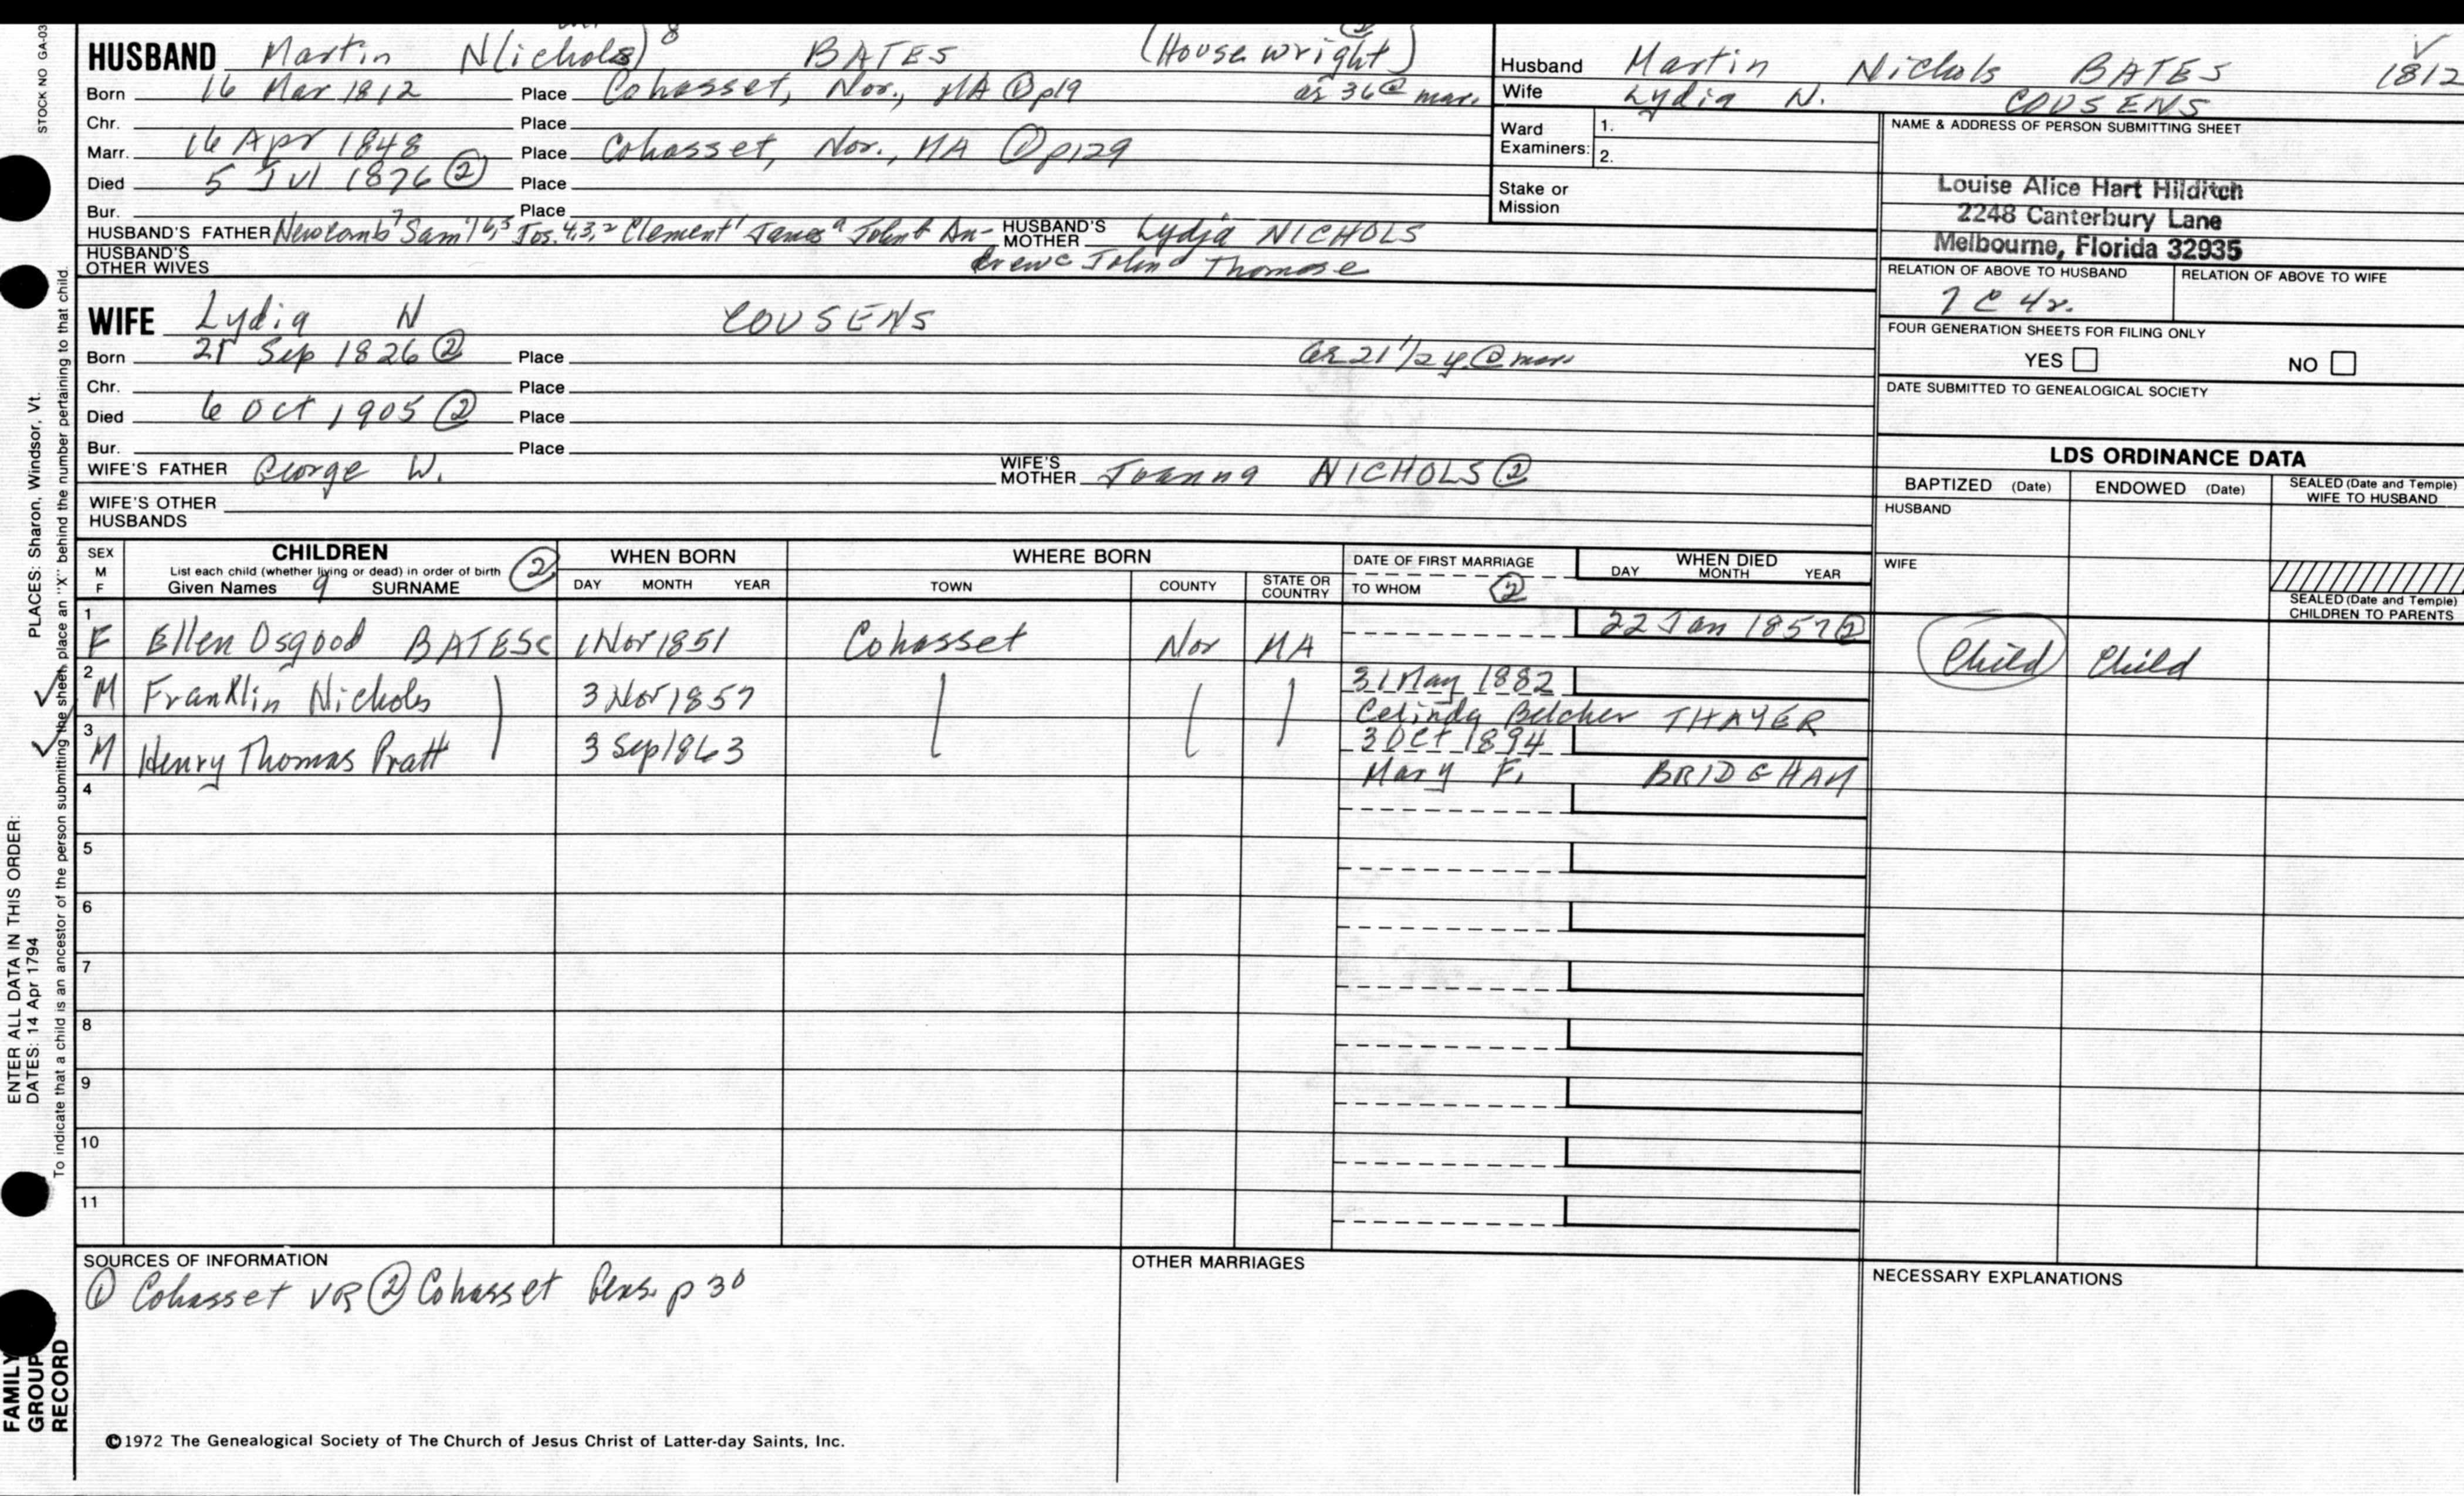 STOCK NO GA-03
HUSBAND Martin N(ichols)8 BATES (Housewright)
Born 16 Mar 1812 Place Cohasset, Nor., MA ① p19 ae 36 @ mar.
Chr. Place
Marr. 16 Apr 1848 Place Cohasset, Nor., MA ① p129
Died 5 Jul 1876 ② Place
Bur. Place
HUSBAND'S FATHER Newcomb7 Saml6,5 Jos.4,3,2 Clement1 James a John b An-
drew c John d Thomas e
HUSBAND'S MOTHER Lydia NICHOLS
HUSBAND'S OTHER WIVES
WIFE Lydia N COUSENS
Born 21 Sep 1826 ② Place ae 21 1/2 y. @ mar.
Chr. Place
Died 6 Oct 1905 ② Place
Bur. Place
WIFE'S FATHER George W. WIFE'S MOTHER Joanna NICHOLS ②
WIFE'S OTHER HUSBANDS
Husband Martin Nichols BATES 1812
Wife Lydia N. COUSENS
Ward Examiners: 1.
2.
Stake or Mission
NAME & ADDRESS OF PERSON SUBMITTING SHEET
Louise Alice Hart Hilditch
2248 Canterbury Lane
Melbourne, Florida 32935
RELATION OF ABOVE TO HUSBAND RELATION OF ABOVE TO WIFE
7 C 4r.
FOUR GENERATION SHEETS FOR FILING ONLY
YES NO
DATE SUBMITTED TO GENEALOGICAL SOCIETY
LDS ORDINANCE DATA
BAPTIZED (Date) ENDOWED (Date) SEALED (Date and Temple) WIFE TO HUSBAND
HUSBAND
WIFE
SEALED (Date and Temple) CHILDREN TO PARENTS
SEX M F CHILDREN ② WHEN BORN WHERE BORN DATE OF FIRST MARRIAGE WHEN DIED
List each child (whether living or dead) in order of birth
Given Names 9 SURNAME DAY MONTH YEAR TOWN COUNTY STATE OR COUNTRY TO WHOM ② DAY MONTH YEAR
1 F Ellen Osgood BATES 1 Nov 1851 Cohasset Nor MA 22 Jan 1857 ② Child Child
2 M Franklin Nichols 3 Nov 1857 31 May 1882
Celinda Belcher THAYER
3 M Henry Thomas Pratt 3 Sep 1863 3 Oct 1894
Mary F. BRIDGHAM
4
5
6
7
8
9
10
11
SOURCES OF INFORMATION
① Cohasset VR ② Cohasset Gens. p 30
OTHER MARRIAGES
NECESSARY EXPLANATIONS
©1972 The Genealogical Society of The Church of Jesus Christ of Latter-day Saints, Inc.
FAMILY GROUP RECORD
ENTER ALL DATA IN THIS ORDER:
DATES: 14 Apr 1794
PLACES: Sharon, Windsor, Vt.
To indicate that a child is an ancestor of the person submitting the sheet, place an "X" behind the number pertaining to that child.